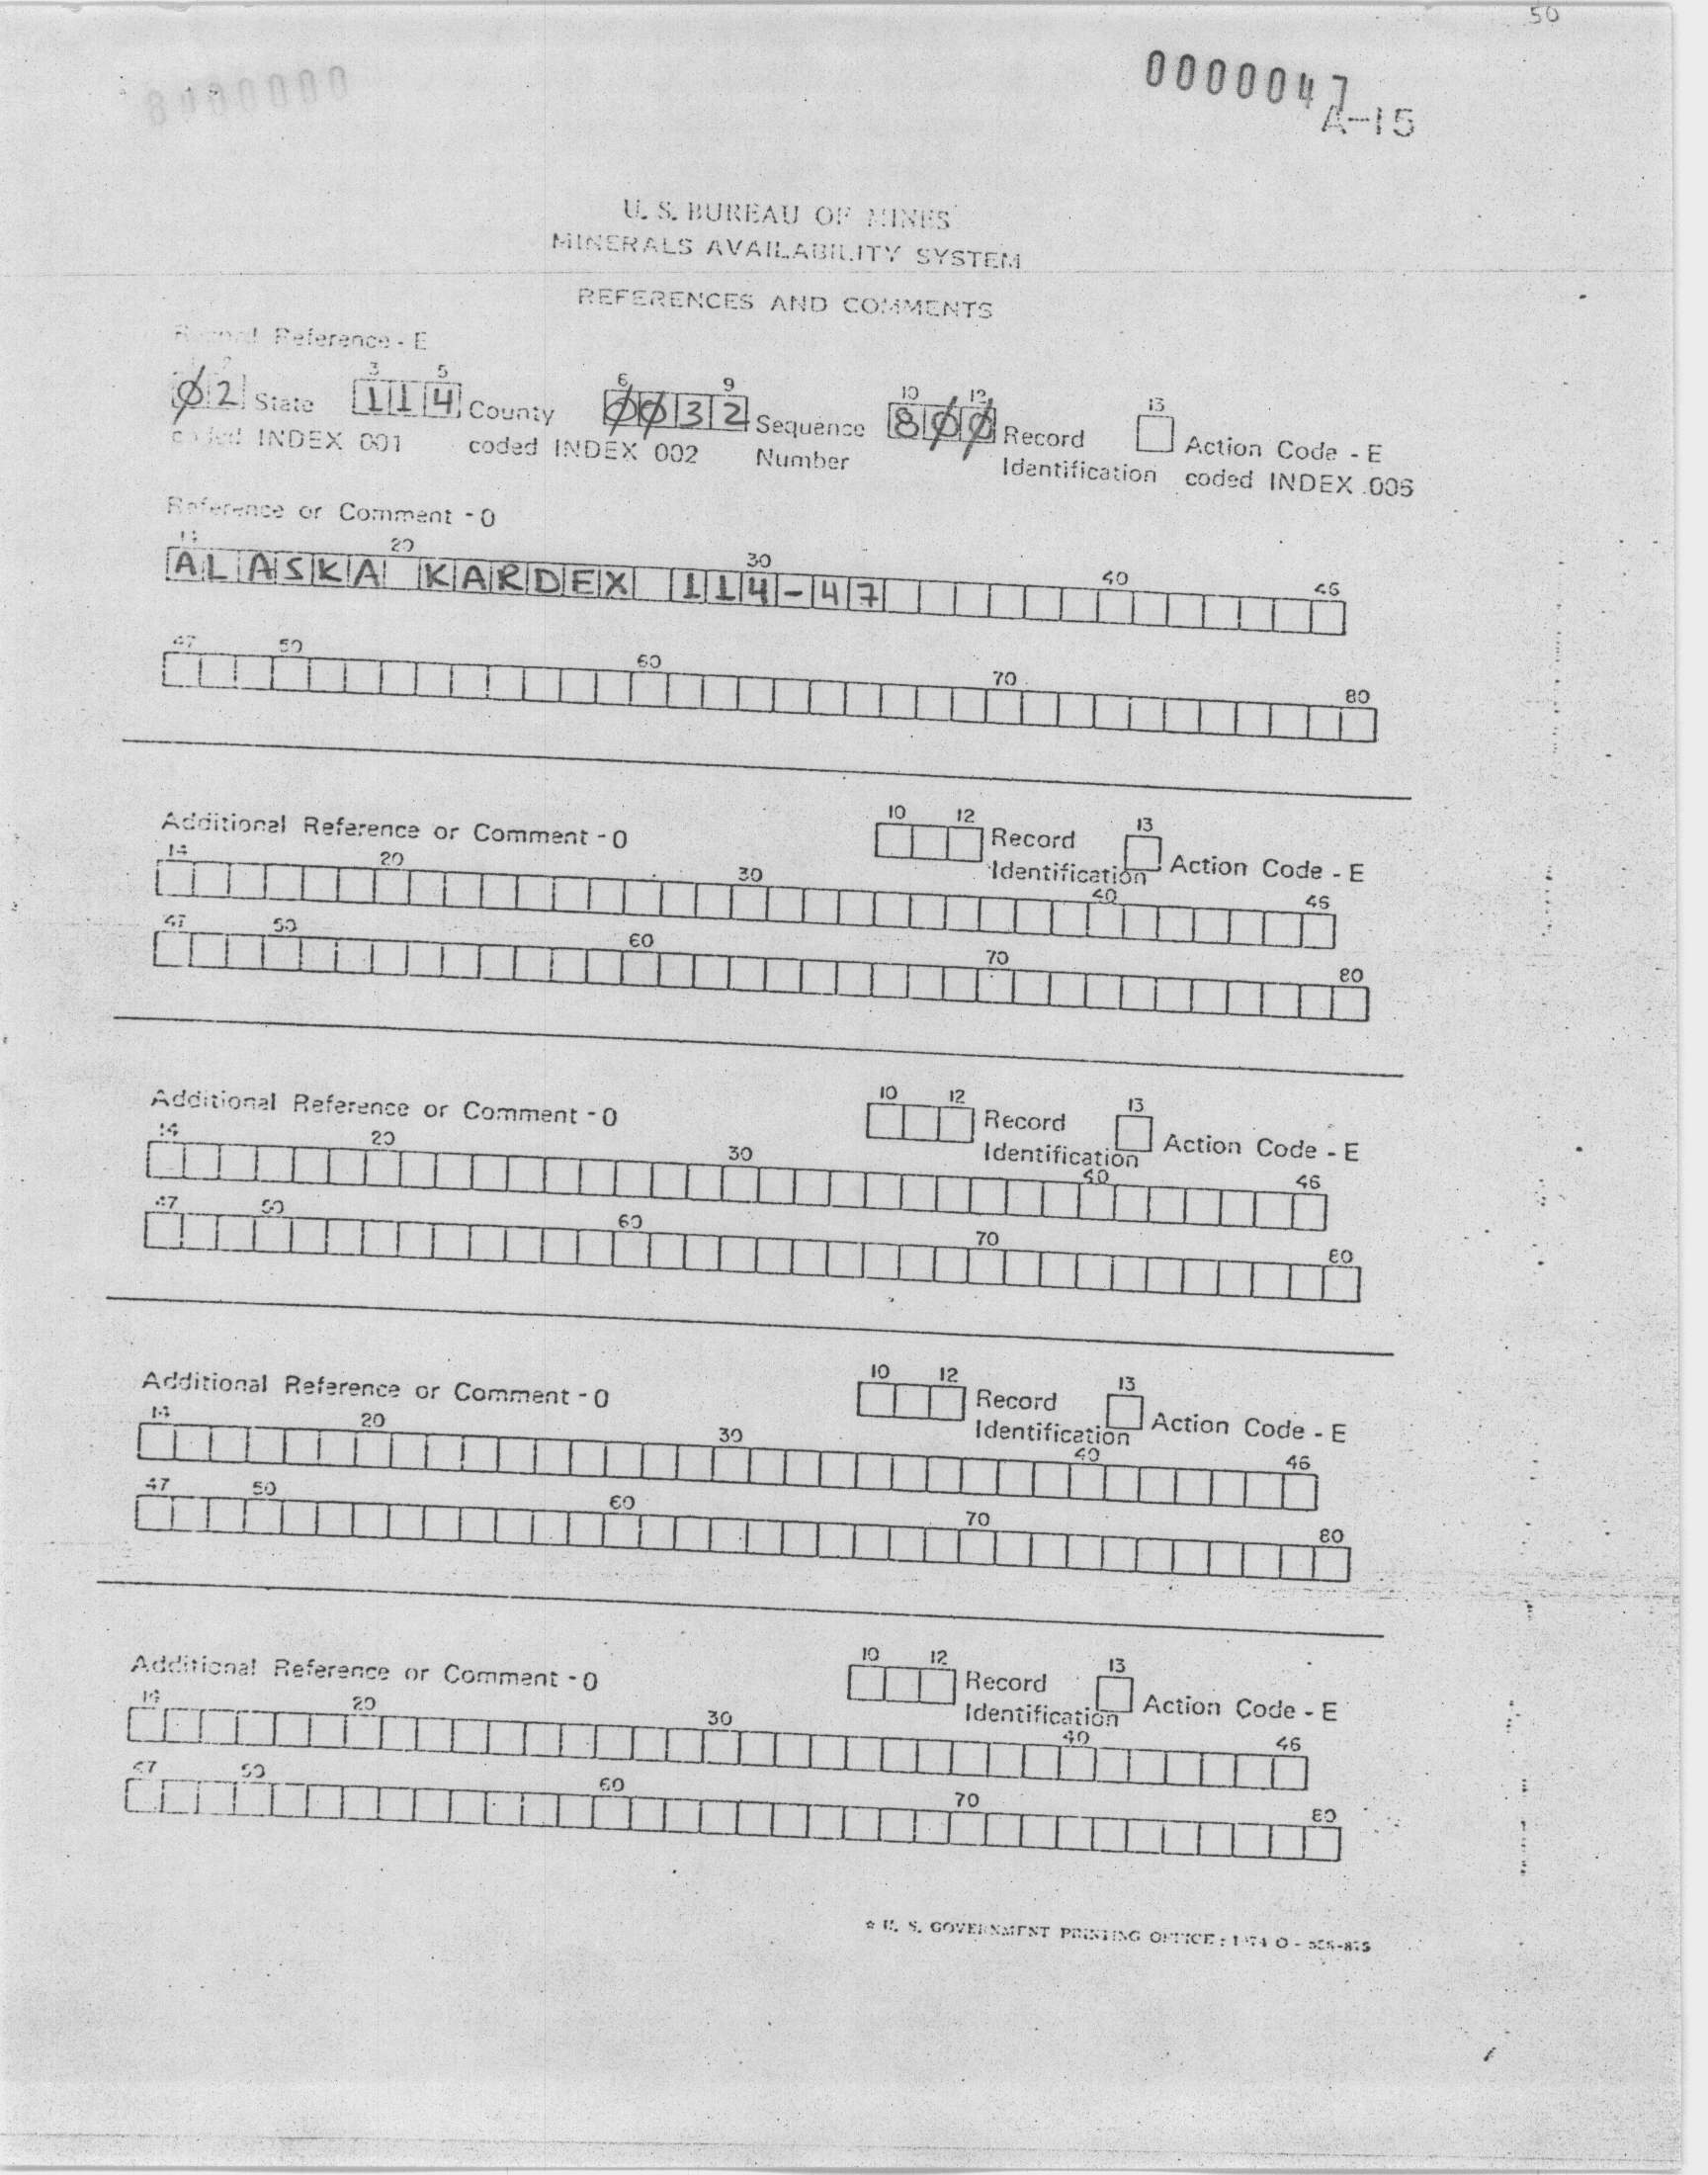 50
0000047
A-15
8000000
U. S. BUREAU OF MINES
MINERALS AVAILABILITY SYSTEM
REFERENCES AND COMMENTS
Record Reference - E
2 3 5 6 9 10 12 13
Ø2 State 114 County ØØ32 Sequence Number 8ØØ Record Identification Action Code - E
coded INDEX 001 coded INDEX 002 coded INDEX 006
Reference or Comment - O
14 20 30 40 46
ALASKA KARDEX 114-47
47 50 60 70 80
Additional Reference or Comment - O 10 12 Record Identification 13 Action Code - E
14 20 30 40 46
47 50 60 70 80
Additional Reference or Comment - O 10 12 Record Identification 13 Action Code - E
14 20 30 40 46
47 50 60 70 80
Additional Reference or Comment - O 10 12 Record Identification 13 Action Code - E
14 20 30 40 46
47 50 60 70 80
Additional Reference or Comment - O 10 12 Record Identification 13 Action Code - E
14 20 30 40 46
47 50 60 70 80
☆ U. S. GOVERNMENT PRINTING OFFICE : 1974 O -